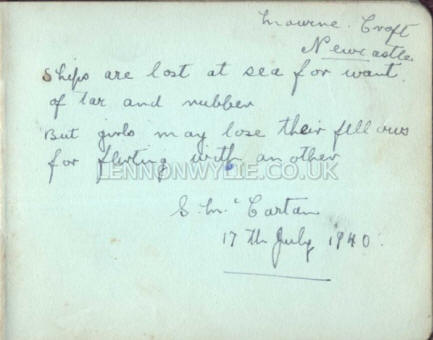 Mourne Croft
Newcastle.
Ships are lost at sea for want
of tar and rubber
But girls may lose their fellows
for flirting with another
LENNONWYLIE.CO.UK
S. McCartan
17th July 1940.